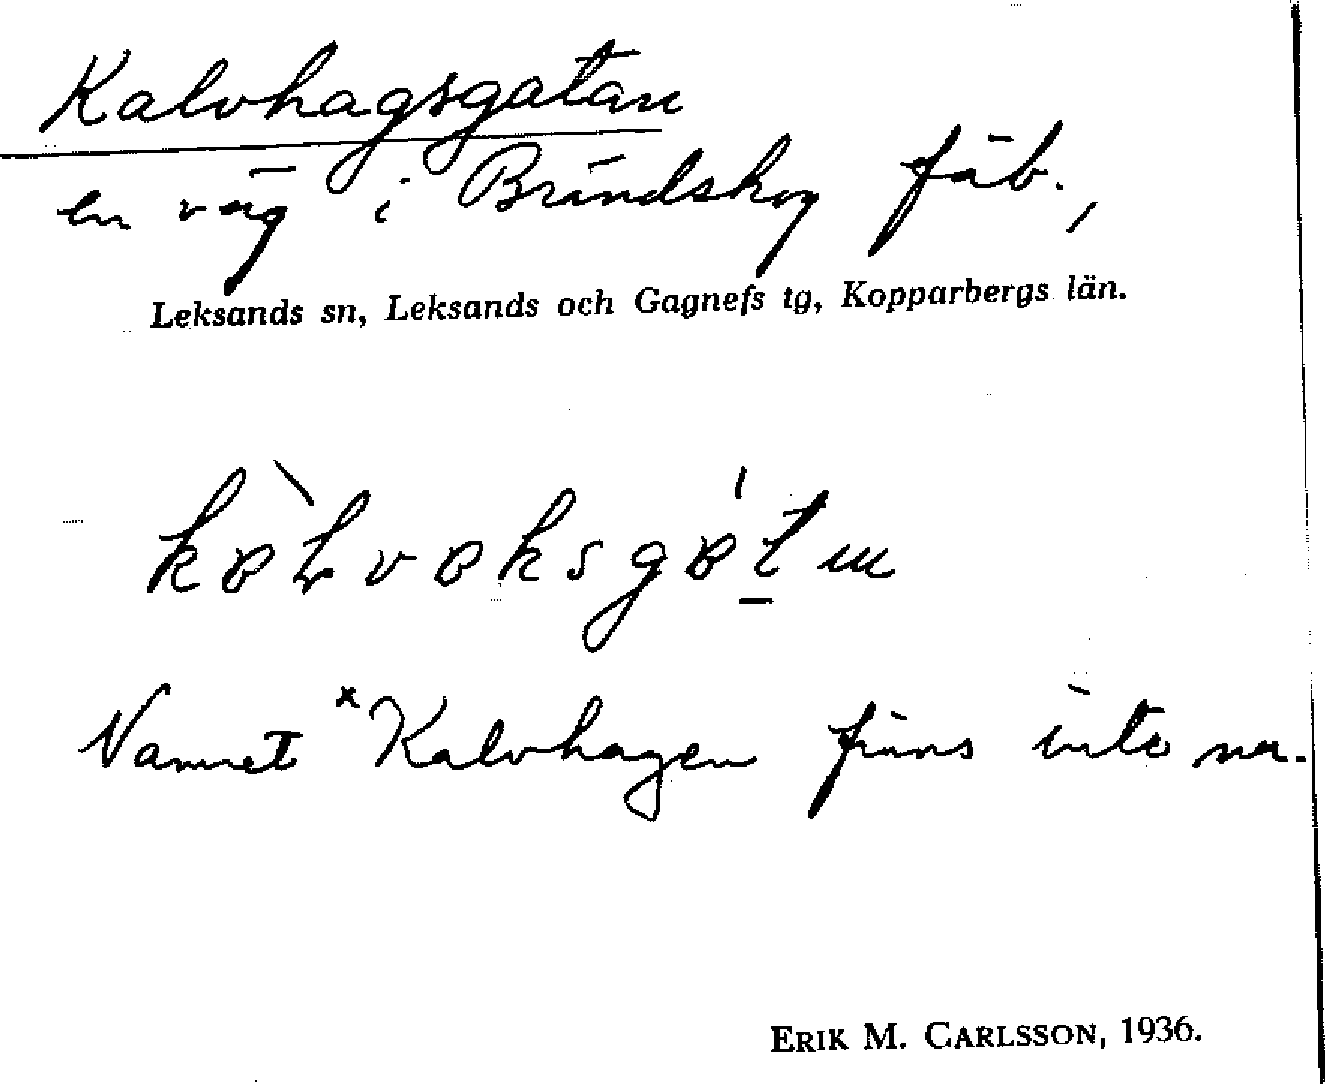 Kalvhagsgatan
en väg i Brändskog fäb.,
Leksands sn, Leksands och Gagnefs tg, Kopparbergs län.
Namnet *Kalvhagen finns inte na.
ERIK M. CARLSSON, 1936.